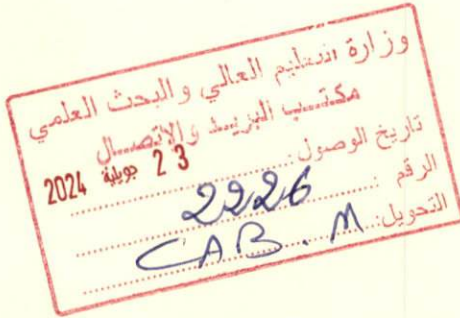 وزارة التعليم العالي والبحث العلمي
مكتب البريد والاتصال
تاريخ الوصول: 23 جويلية 2024
الرقم: 2226
التحويل: CAB. M